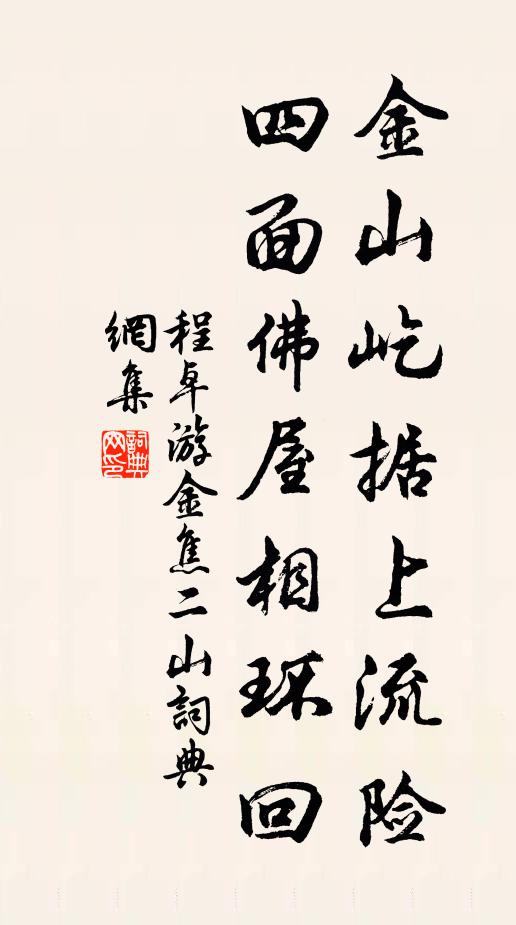 金山屹据上流险
四面佛屋相环回
程卓游金焦二山詞典
網集
詞典網印